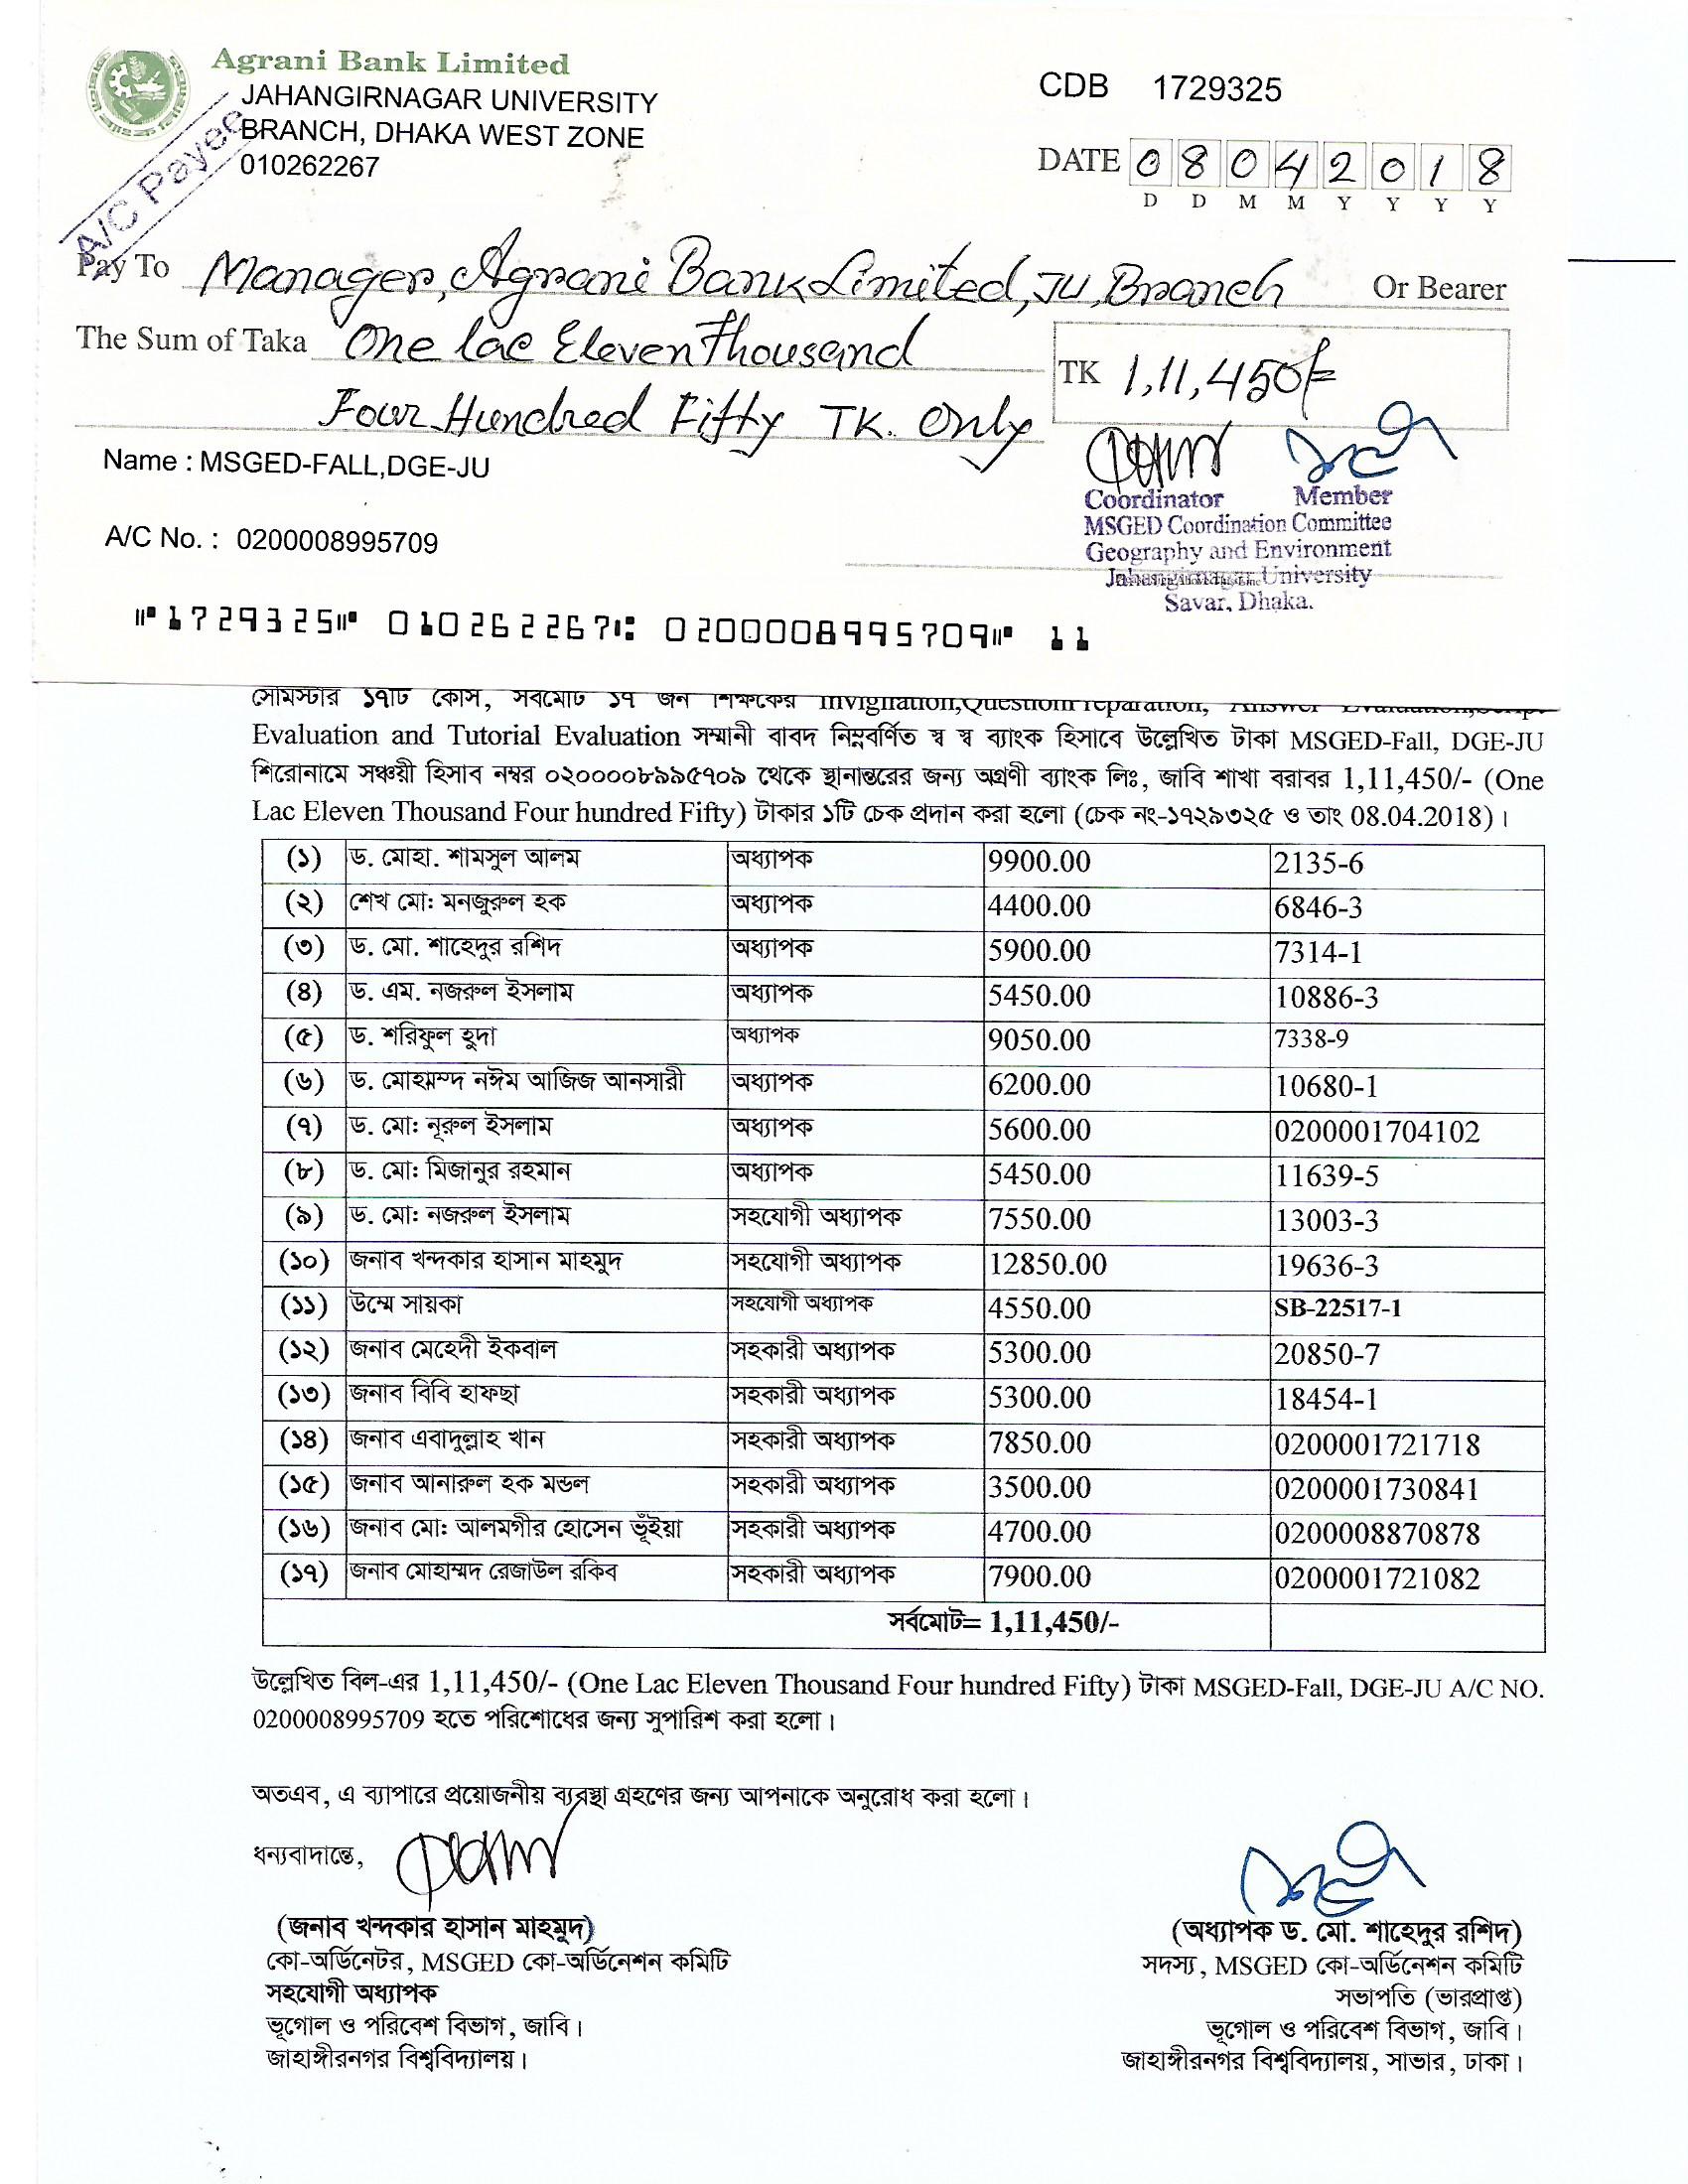 Agrani Bank Limited
JAHANGIRNAGAR UNIVERSITY
BRANCH, DHAKA WEST ZONE
010262267
A/C Payee
CDB 1729325
DATE 0 8 0 4 2 0 1 8
D D M M Y Y Y Y
Pay To Manager, Agrani Bank Limited, JU, Branch Or Bearer
The Sum of Taka One lac Eleven Thousand
TK 1,11,450/=
Four Hundred Fifty TK. Only
Name : MSGED-FALL,DGE-JU
A/C No. : 0200008995709
Coordinator Member
MSGED Coordination Committee
Geography and Environment
Jahangirnagar University
Savar, Dhaka.
1729325 010262267 0200008995709 11
সেমিস্টার ১৭টি কোর্স, সর্বমোট ১৭ জন শিক্ষকের Invigilation,Question Preparation, Answer
Evaluation and Tutorial Evaluation সম্মানী বাবদ নিম্নবর্ণিত স্ব স্ব ব্যাংক হিসাবে উল্লেখিত টাকা MSGED-Fall, DGE-JU
শিরোনামে সঞ্চয়ী হিসাব নম্বর ০২০০০০৮৯৯৫৭০৯ থেকে স্থানান্তরের জন্য অগ্রণী ব্যাংক লিঃ, জাবি শাখা বরাবর 1,11,450/- (One
Lac Eleven Thousand Four hundred Fifty) টাকার ১টি চেক প্রদান করা হলো (চেক নং-১৭২৯৩২৫ ও তাং 08.04.2018)।
(১) ড. মোহা. শামসুল আলম অধ্যাপক 9900.00 2135-6
(২) শেখ মো: মনজুরুল হক অধ্যাপক 4400.00 6846-3
(৩) ড. মো. শাহেদুর রশিদ অধ্যাপক 5900.00 7314-1
(৪) ড. এম. নজরুল ইসলাম অধ্যাপক 5450.00 10886-3
(৫) ড. শরিফুল হুদা অধ্যাপক 9050.00 7338-9
(৬) ড. মোহাম্মদ নঈম আজিজ আনসারী অধ্যাপক 6200.00 10680-1
(৭) ড. মো: নূরুল ইসলাম অধ্যাপক 5600.00 0200001704102
(৮) ড. মো: মিজানুর রহমান অধ্যাপক 5450.00 11639-5
(৯) ড. মো: নজরুল ইসলাম সহযোগী অধ্যাপক 7550.00 13003-3
(১০) জনাব খন্দকার হাসান মাহমুদ সহযোগী অধ্যাপক 12850.00 19636-3
(১১) উম্মে সায়কা সহযোগী অধ্যাপক 4550.00 SB-22517-1
(১২) জনাব মেহেদী ইকবাল সহকারী অধ্যাপক 5300.00 20850-7
(১৩) জনাব বিবি হাফছা সহকারী অধ্যাপক 5300.00 18454-1
(১৪) জনাব এবাদুল্লাহ খান সহকারী অধ্যাপক 7850.00 0200001721718
(১৫) জনাব আনারুল হক মন্ডল সহকারী অধ্যাপক 3500.00 0200001730841
(১৬) জনাব মো: আলমগীর হোসেন ভূঁইয়া সহকারী অধ্যাপক 4700.00 0200008870878
(১৭) জনাব মোহাম্মদ রেজাউল রকিব সহকারী অধ্যাপক 7900.00 0200001721082
সর্বমোট= 1,11,450/-
উল্লেখিত বিল-এর 1,11,450/- (One Lac Eleven Thousand Four hundred Fifty) টাকা MSGED-Fall, DGE-JU A/C NO.
0200008995709 হতে পরিশোধের জন্য সুপারিশ করা হলো।
অতএব, এ ব্যাপারে প্রয়োজনীয় ব্যবস্থা গ্রহণের জন্য আপনাকে অনুরোধ করা হলো।
ধন্যবাদান্তে,
(জনাব খন্দকার হাসান মাহমুদ)
কো-অর্ডিনেটর, MSGED কো-অর্ডিনেশন কমিটি
সহযোগী অধ্যাপক
ভূগোল ও পরিবেশ বিভাগ, জাবি।
জাহাঙ্গীরনগর বিশ্ববিদ্যালয়।
(অধ্যাপক ড. মো. শাহেদুর রশিদ)
সদস্য, MSGED কো-অর্ডিনেশন কমিটি
সভাপতি (ভারপ্রাপ্ত)
ভূগোল ও পরিবেশ বিভাগ, জাবি।
জাহাঙ্গীরনগর বিশ্ববিদ্যালয়, সাভার, ঢাকা।